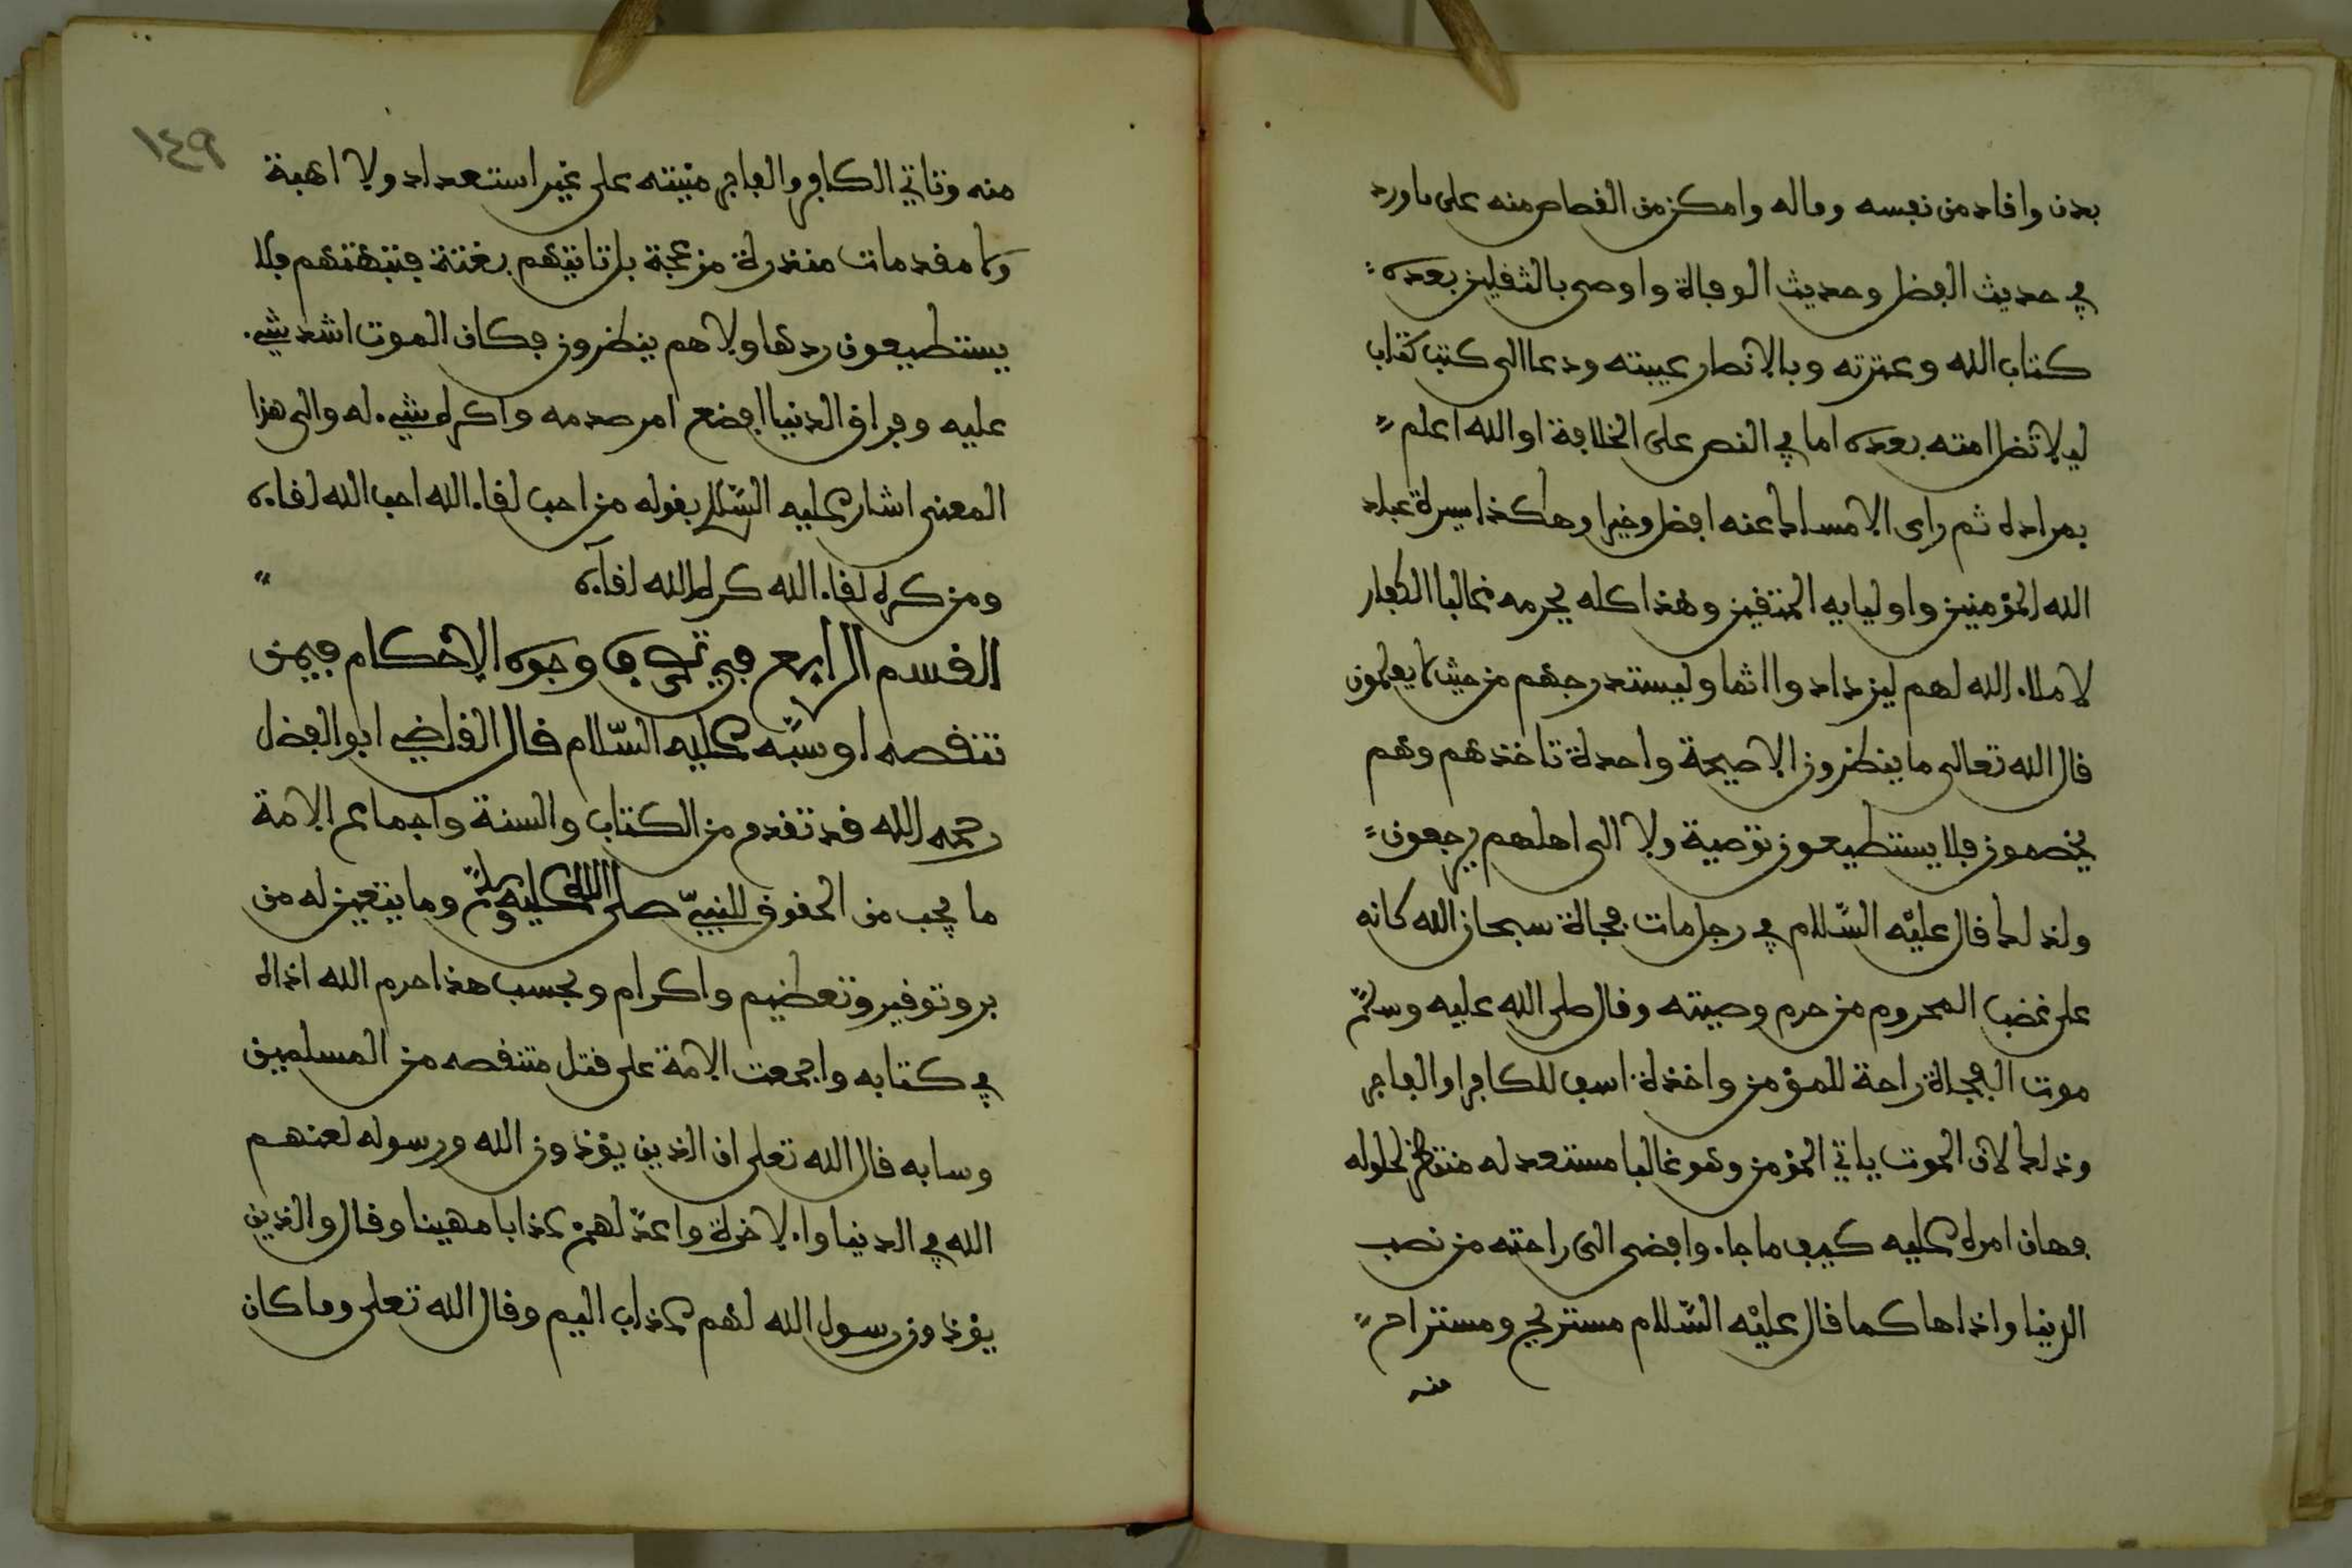 بدن وافاد من نفسه وماله وامكن من القصاص منه على ما ورد
في حديث الفضل وحديث الوفاة واوصى بالثقلين بعده
كتاب الله وعترته وبالانصار عيبته ودعا الى كتب كتاب
ليلا تضل امته بعده اما في النص على الخلافة او الله اعلم
بمراده ثم راى الامساك عنه افضل وخيرا وهكذا سيرة عباد
الله المؤمنين واوليايه المتقين وهذا كله يحرمه غالبا الكفار
لاملاء الله لهم ليزدادوا اثما وليستدرجهم من حيث لا يعلمون
قال الله تعالى ما ينظرون الا صيحة واحدة تاخذهم وهم
يخصمون فلا يستطيعون توصية ولا الى اهلهم يرجعون
ولذلك قال عليْه السّلام في رجل مات فجاة سبحان الله كانه
على غضب المحروم من حرم وصيته وقال صلى الله عليه وسلّم
موت الفجاة راحة للمؤمن واخذة اسف للكافر او الفاجر
وذلك لان الموت ياتي المؤمن وهو غالبا مستعد له منتظر لحلوله
فهان امره عليه كيف ما جاء وافضى الى راحته من نصب
الدنيا واذاها كما قال عليْه السّلام مستريح ومستراح
منه
١٤٩
منه وتاتي الكافر والفاجر منيته على غير استعداد ولا اهبة
ولا مقدمات منذرة مزعجة بل تاتيهم بغتة فتبهتهم فلا
يستطيعون ردها ولا هم ينظرون فكان الموت اشد شيء
عليه وفراق الدنيا افضع امر صدمه واكره شيء له والى هذا
المعنى اشار عليه السّلام بقوله من احب لقاء الله احب الله لقاءه
ومن كره لقاء الله كره الله لقاءه
القسم الرابع في تصرف وجوه الاحكام فيمن
تنقصه او سبّه عليه السّلام قال القاضي ابو الفضل
رحمه الله قد تقدم من الكتاب والسنة واجماع الامة
ما يجب من الحقوق للنبيّ صلى الله عليه وسلّم وما يتعين له من
بر وتوقير وتعظيم واكرام وبحسب هذا حرم الله اذاه
في كتابه واجمعت الامة على قتل متنقصه من المسلمين
وسابه قال الله تعلى ان الذين يؤذون الله ورسوله لعنهم
الله في الدنيا والاخرة واعدّ لهمْ عذابا مهينا وقال والذين
يؤذون رسول الله لهم عذاب اليم وقال الله تعلى وما كان